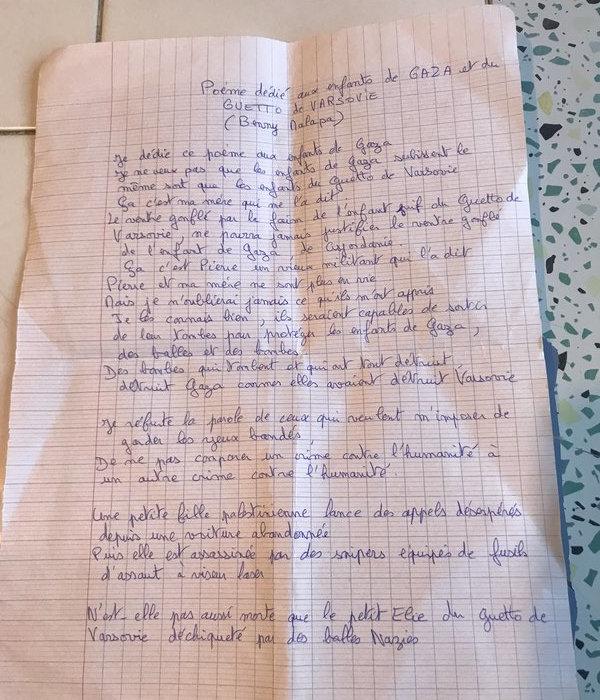 Poème dédié aux enfants de GAZA et du
GUETTO de VARSOVIE
(Benny Malapa)
Je dédie ce poème aux enfants de Gaza
Je ne veux pas que les enfants de Gaza subissent le
même sort que les enfants du Guetto de Varsovie
Ça c'est ma mère qui me l'a dit
Le ventre gonflé par la faim de l'enfant juif du Guetto de
Varsovie, ne pourra jamais justifier le ventre gonflé
de l'enfant de Gaza de Cisjordanie.
Ça c'est Pierre un vieux militant qui l'a dit
Pierre et ma mère ne sont plus en vie
Mais je n'oublierai jamais ce qu'ils m'ont appris
Je les connais bien, ils seraient capables de sortir
de leur tombes pour protéger les enfants de Gaza,
des balles et des bombes.
Des bombes qui tombent et qui ont tout détruit,
détruit Gaza comme elles avaient détruit Varsovie
Je réfute la parole de ceux qui veulent m'imposer de
garder les yeux bandés,
De ne pas comparer un crime contre l'humanité à
un autre crime contre l'humanité.
Une petite fille palestinienne lance des appels désespérés
depuis une voiture abandonnée
Puis elle est assassinée par des snipers équipés de fusils
d'assaut à viseur laser
N'est-elle pas aussi morte que le petit Elie du guetto de
Varsovie déchiqueté par des balles Nazies